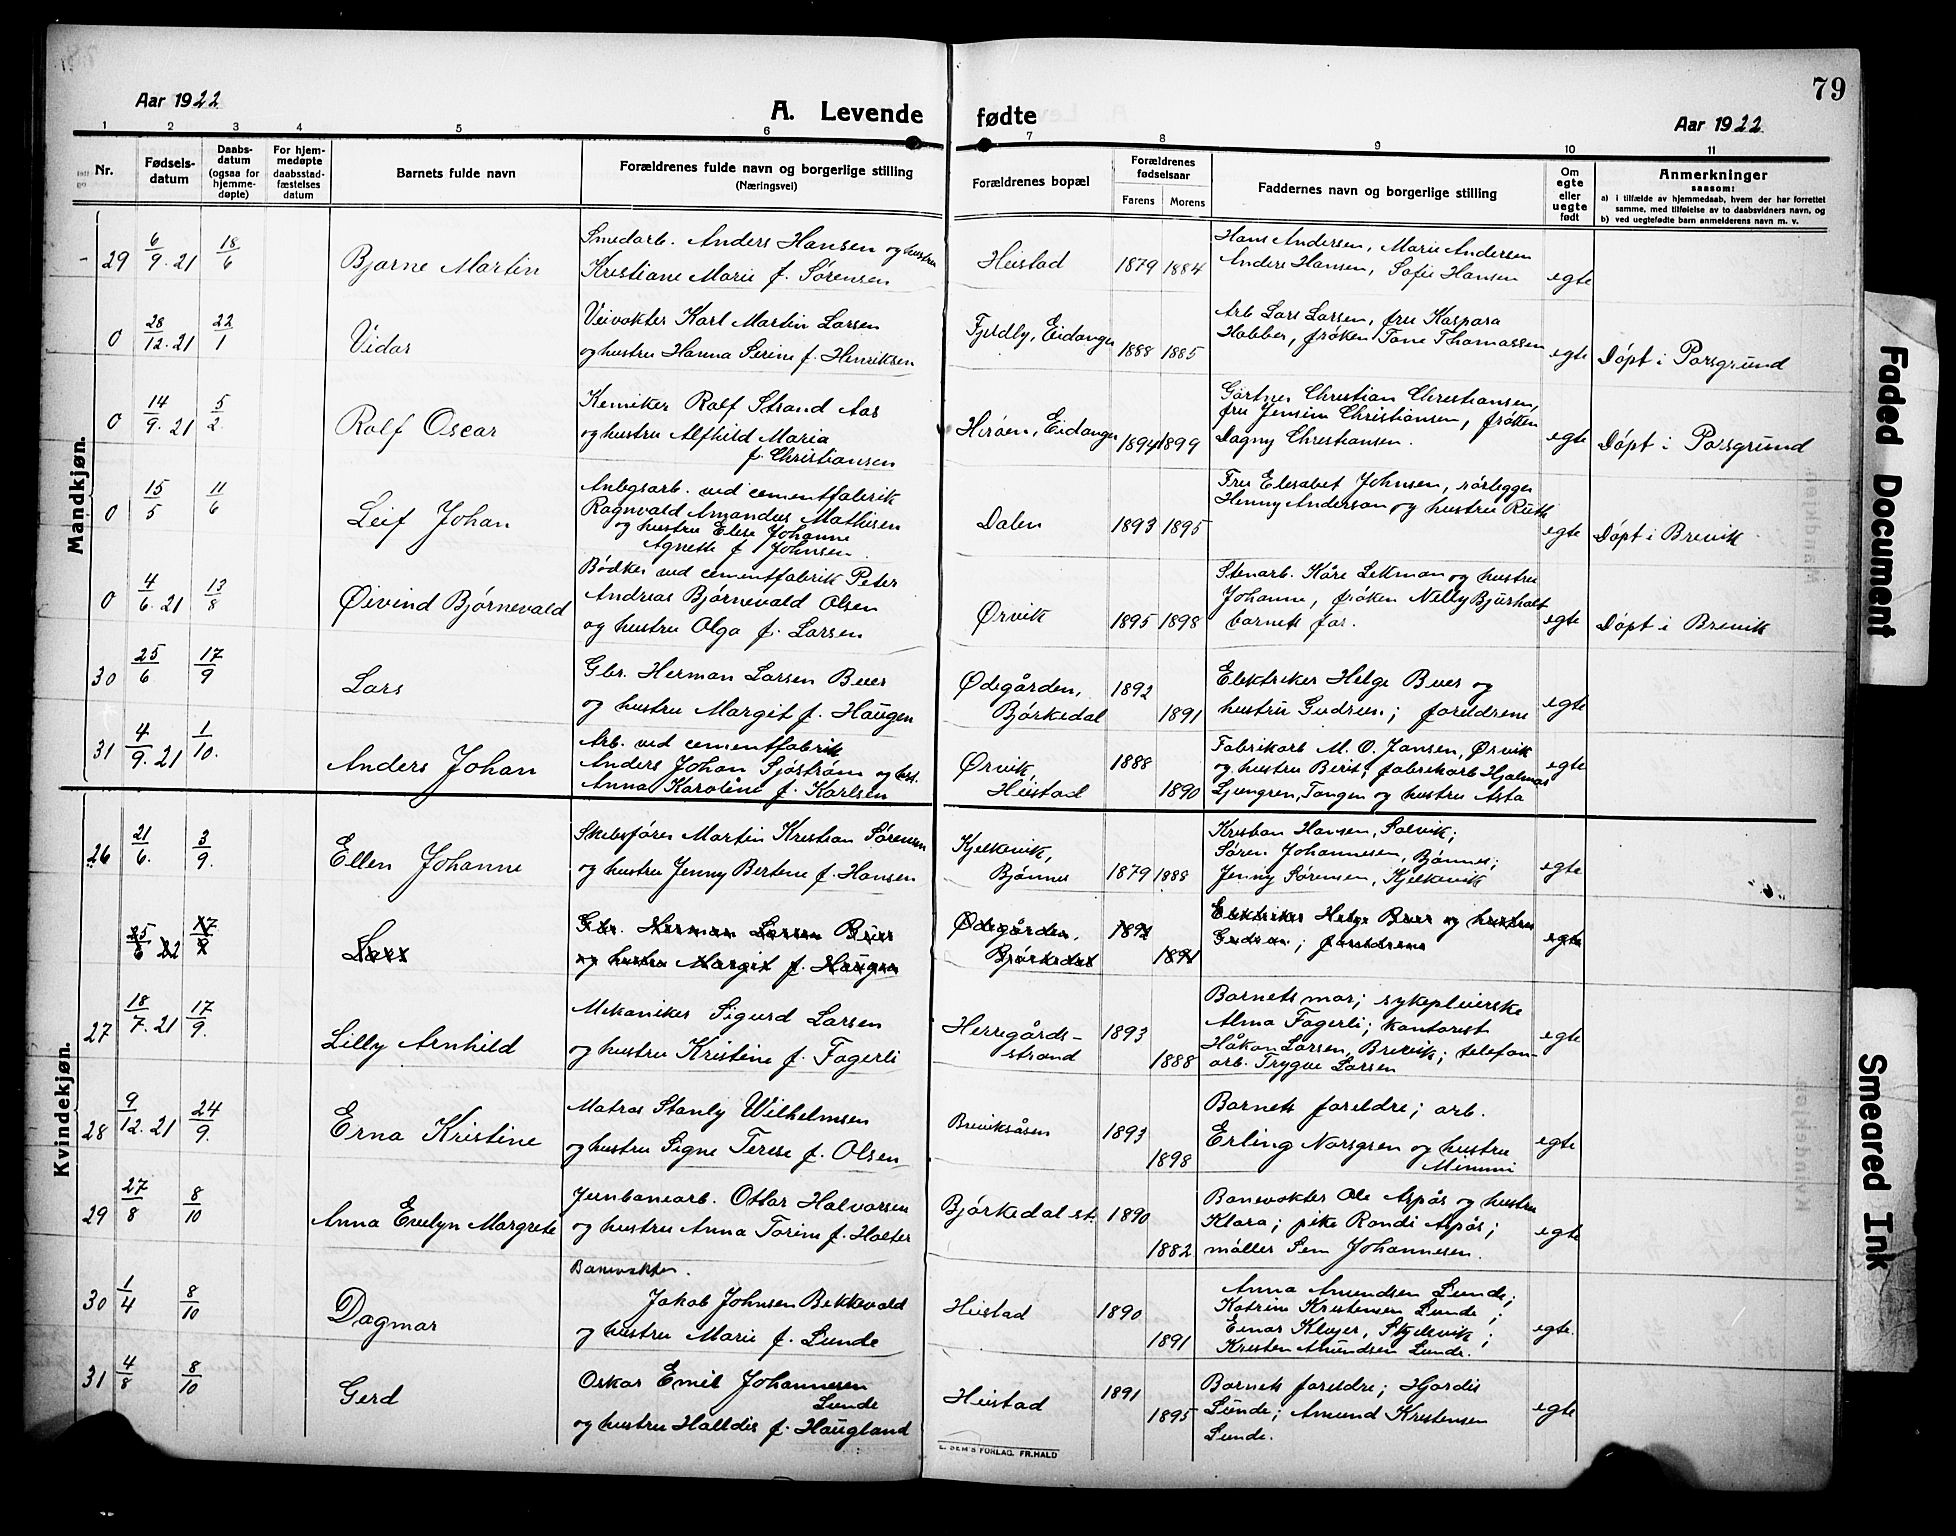 79
Aar 1922
A. Levende
fødte
Aar 1922
1 2 3 4 5 6 7 8 9 10 11
Nr.
Fødsels-
datum
Daabs-
datum
(ogsaa for
hjemme-
døpte)
For hjem-
medøpte
daabsstad-
fæstelses
datum
Barnets fulde navn
Forældrenes fulde navn og borgerlige stilling
(Næringsvei)
Forældrenes bopæl
Forældrenes
fødselsaar
Farens Morens
Faddernes navn og borgerlige stilling
Om
egte
eller
uegte
født
Anmerkninger
saasom:
a) i tilfælde av hjemmedaab, hvem der har forrettet
samme, med tilføielse av to daabsvidners navn, og
b) ved uegtefødte barn anmelderens navn m. v.
Mandkjøn.
29 6/9.21 18/6 Bjarne Martin
Smedarb. Anders Hansen og hustru
Kristiane Marie f. Sørensen
Heistad 1879 1884
Hans Andersen, Marie Andersen
Anders Hansen, Sofie Hansen
egte
0 28/12.21 22/1 Vidar
Veivokter Karl Martin Larsen
og hustru Hanna Serine f. Henriksen
Fjeldly, Eidanger 1888 1885
Arb Lars Larsen, fru Kaspara
Hobber, frøken Tone Thomassen
egte Døpt i Porsgrund
0 14/9.21 5/2 Rolf Oscar
Kemiker Rolf Strand Aas
og hustru Alfhild Maria
f. Christiansen
Herøen, Eidanger 1894 1899
Gartner Christian Christiansen,
fru Jensine Christiansen, frøken
Dagny Christiansen.
egte Døpt i Porsgrund
0 15/5 11/6 Leif Johan
Anlegsarb. ved cementfabrik
Ragnvald Amandus Mathisen
og hustru Elise Johanne
Agnethe f. Johnsen
Dalen 1893 1895
Fru Elisabet Johnsen, rørlegger
Henny Anderson og hustru Ruth
egte Døpt i Brevik
0 4/6.21 13/8 Øivind Bjørnevald
Bødker ved cementfabrik Peter
Andreas Bjørnevald Olsen
og hustru Olga f. Larsen
Ørvik 1895 1898
Stenarb. Kåre Lekman og hustru
Johanne, frøken Nelly Bjurholt
barnets far.
egte Døpt i Brevik
30 25/6 17/9 Lars
Gbr. Herman Larsen Buer
og hustru Margit f. Haugen
Ødegården,
Bjørkedal 1892 1891
Elektriker Helge Buer og
hustru Gudrun; foreldrene
egte
31 4/9.21 1/10. Anders Johan
Arb. ved cementfabrik
Anders Johan Sjøstrøm og hst.
Anna Karoline f. Karlsen
Ørvik,
Heistad 1888 1890
Fabrikarb M. O. Jansen, Ørvik
og hustru Berit; fabrikarb Hjalmar
Ljungren, Tangen og hustru Asta
egte
Kvindekjøn.
26 21/6. 3/9. Ellen Johanne
Skibsfører Martin Kristian Sørensen
og hustru Jenny Bertine f. Hansen
Kjelkevik,
Bjønnes 1879 1888
Kristian Hansen, Salvik;
Søren Johannesen, Bjønnes;
Jenny Sørensen, Kjelkevik
egte
25/6 22 17/9 Lars
Gbr. Herman Larsen Buer
og hustru Margit f. Haugen
Ødegården,
Bjørkedal 1892 1891
Elektriker Helge Buer og hustru
Gudrun; foreldrene
egte
27 18/7.21 17/9. Lilly Arnhild
Mekaniker Sigurd Larsen
og hustru Kristine f. Fagerli
Herregårds-
strand 1893 1888
Barnets mor; sykepleierske
Alma Fagerli; kontorist
Håkon Larsen, Brevik; telefon-
arb. Trygve Larsen
egte
28 9/12.21 24/9. Erna Kristine
Matros Stanly Wilhelmsen
og hustru Signe Terese f. Olsen
Breviksåsen 1893 1898
Barnets foreldre; arb.
Erling Norsgren og hustru
Mimmi
egte
29 27/8 8/10 Anna Evelyn Margrete
Jernbanearb. Ottar Halvorsen
og hustru Anna Torine f. Holter
Bjørkedal st. 1890 1882
Banevokter Ole Aspås og hustru
Klara; pike Randi Aspås;
møller Sem Johannesen.
egte
30 1/4 8/10 Dagmar
Banevokter.
Jakob Johnsen Bekkevold
og hustru Marie f. Lunde
Heistad 1890 1891
Anna Amundsen Lunde;
Katrine Kristensen Lunde;
Einar Kløjer, Skjelevik;
Kristen Amundsen Lunde.
egte.
31 4/8 8/10 Gerd
Oskar Emil Johannesen
Lunde
og hustru Halldis f. Haugland
Heistad 1891 1895
Barnets foreldre; Hjørdis
Lunde; Amund Kristensen
Lunde.
egte
E. SEM'S FORLAG, FR.HALD
Faded Document
Smeared Ink